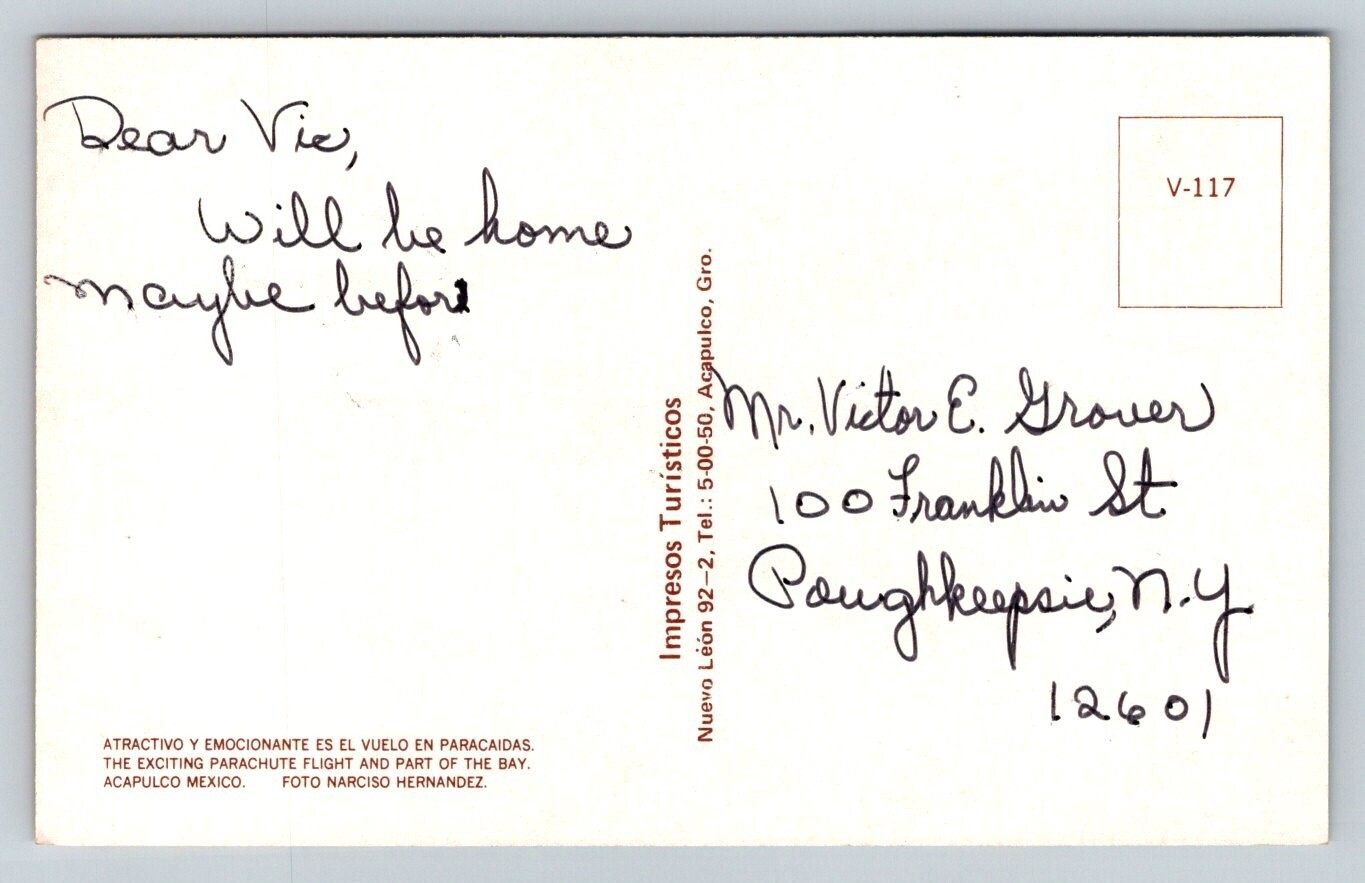 Dear Vic,
Will be home
maybe before
V-117
Impresos Turísticos
Nuevo León 92-2, Tel.: 5-00-50, Acapulco, Gro.
Mr. Victor E. Grover
100 Franklin St
Poughkeepsie, N.Y
12601
ATRACTIVO Y EMOCIONANTE ES EL VUELO EN PARACAIDAS.
THE EXCITING PARACHUTE FLIGHT AND PART OF THE BAY.
ACAPULCO MEXICO. FOTO NARCISO HERNANDEZ.